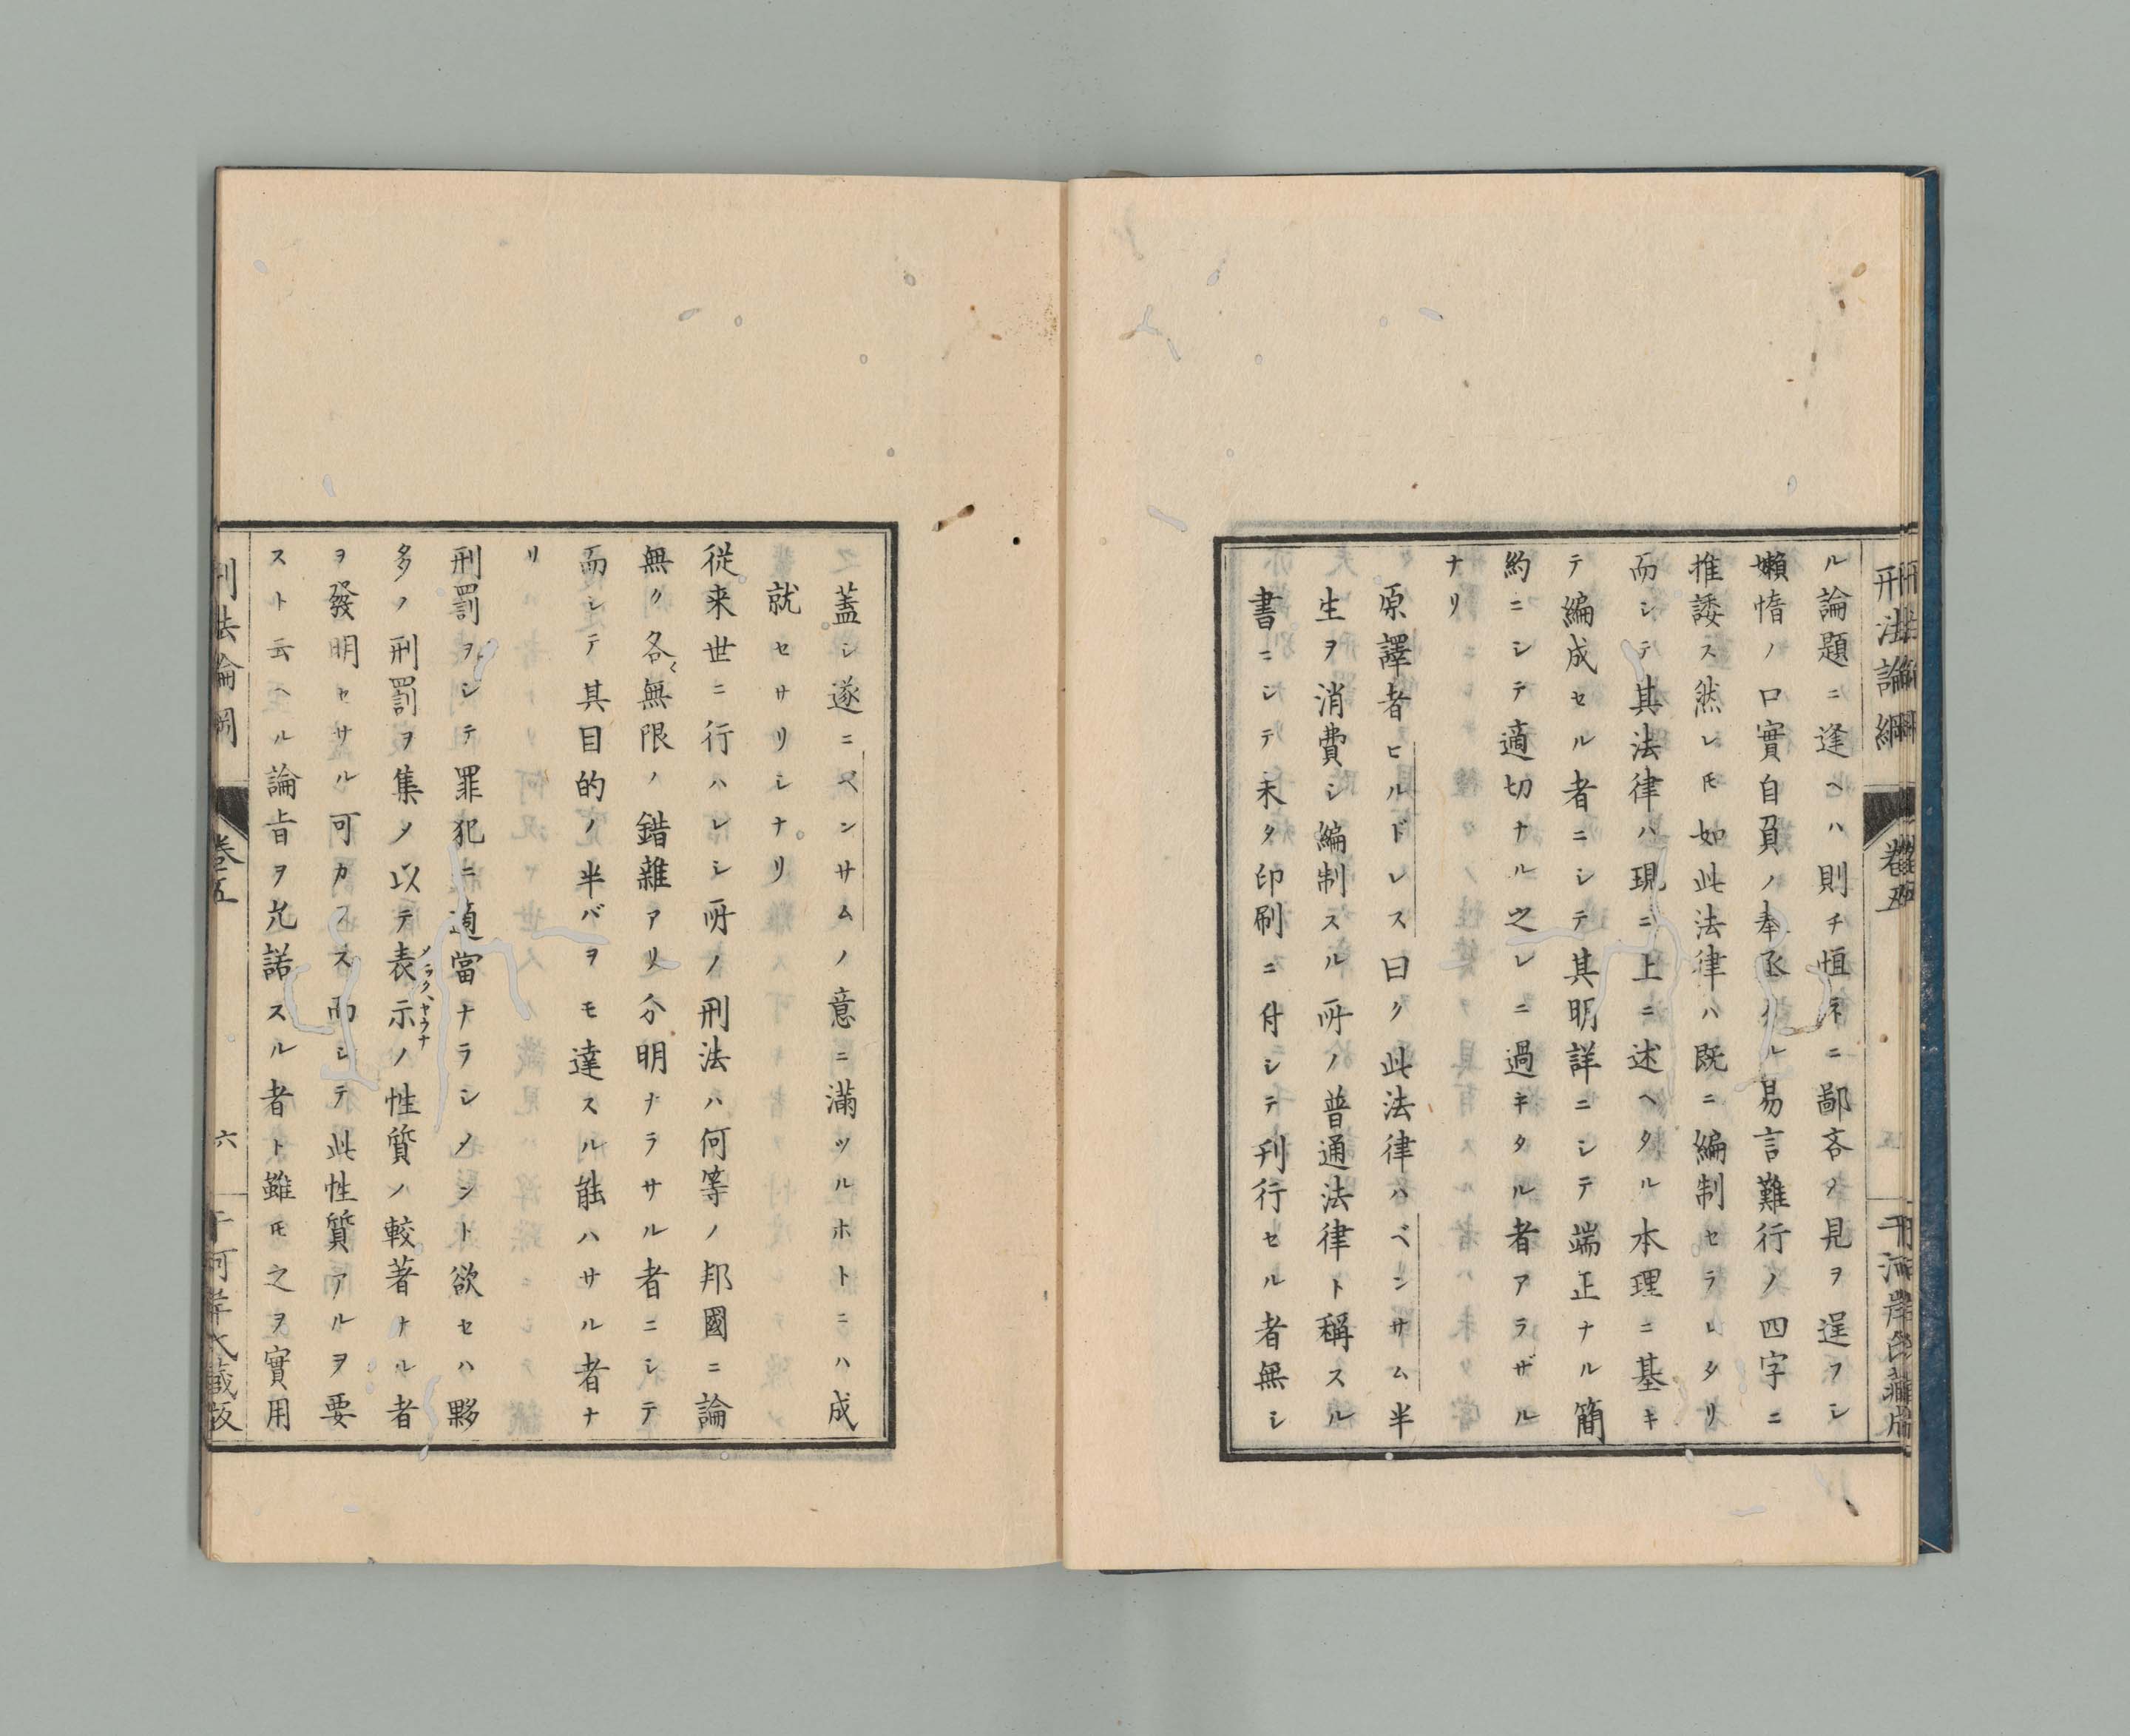 刑法論綱
卷五
ル論題ニ逢ヘハ則チ恒ネニ鄙吝ノ見ヲ逞フシ
嬾惰ノ口實自負ノ奉承タル易言難行ノ四字ニ
推諉ス然レ𪜈如此法律ハ既ニ編制セラレタリ
而シテ其法律ハ現ニ上ニ述ヘタル本理ニ基キ
テ編成セル者ニシテ其明詳ニシテ端正ナル簡
約ニシテ適切ナル之レニ過キタル者アラザル
ナリ
原譯者ヒルドレス曰ク此法律ハベンサム半
生ヲ消費シ編制スル所ノ普通法律ト稱スル
書ニシテ未タ印刷ニ付シテ刊行セル者無シ
蓋シ遂ニベンサムノ意ニ滿ツルホトニハ成
就セサリシナリ
從来世ニ行ハレシ所ノ刑法ハ何等ノ邦國ニ論
無ク各〻無限ノ錯雜アリ分明ナラサル者ニシテ
而シテ其目的ノ半バヲモ達スル能ハサル者ナ
リ
刑罰ヲシテ罪犯ニ適當ナラシメント欲セハ夥
多ノ刑罰ヲ集メ以テ表示ノ性質ノ較著ナル者
ヲ發明セサル可カラス而シテ此性質アルヲ要
スト云ヘル論旨ヲ允諾スル者ト雖𪜈之ヲ實用
刑法論綱
卷五
六